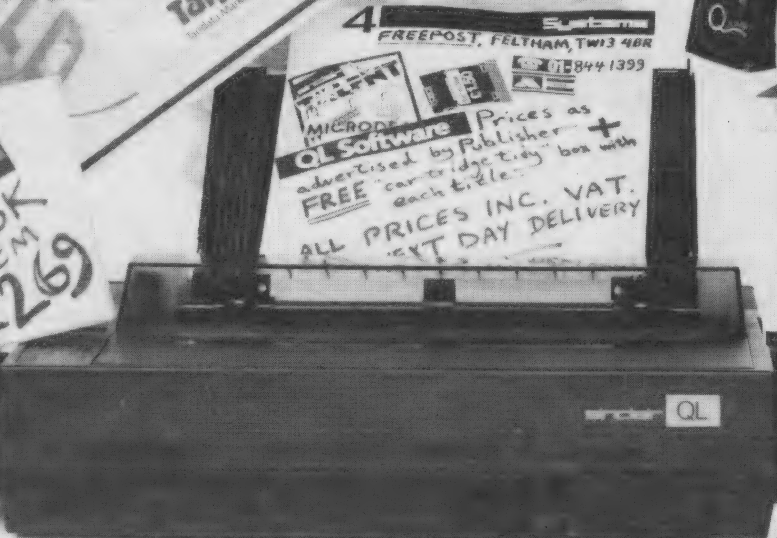 4 Systems
FREEPOST, FELTHAM, TW13 4BR
01-844 1399
MICRODE
QL Software Prices as
advertised by Publisher +
FREE "cartridge tidy" box with
each title.
ALL PRICES INC. VAT.
EXT DAY DELIVERY
269
sinclair QL